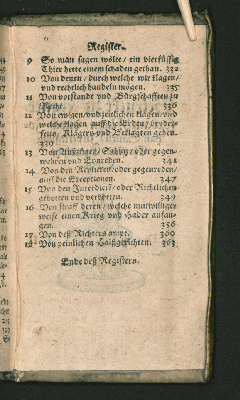 Register.
9 So man sagen wolte / ein vierfüssig
Thier hette einem schaden gethan. 332
10 Von denen / durch welche wir klagen /
und rechtlich handeln mögen. 335
11 Von vorstande und Bürgschafften zu
Recht. 336
12 Von ewigen / und zeitlichen klagen / und
welche klagen auff die Erben / beyder-
seits / Klägers und Beklagten gehen.
339
13 Von Außzügen / Schutz / oder gegen-
wehren und Einreden. 341
14 Von den Replicken / oder gegenreden /
auff die Exceptionen. 347
15 Von den Interdicis / oder Rechtlichen
gebotten und verbotten. 349
16 Von straff deren / welche mutwilliger
weise einen Krieg und Hader anfan-
gen. 356
17 Von deß Richters ampt. 360
18 Von peinlichen Halßgerichten. 363
Ende deß Registers.